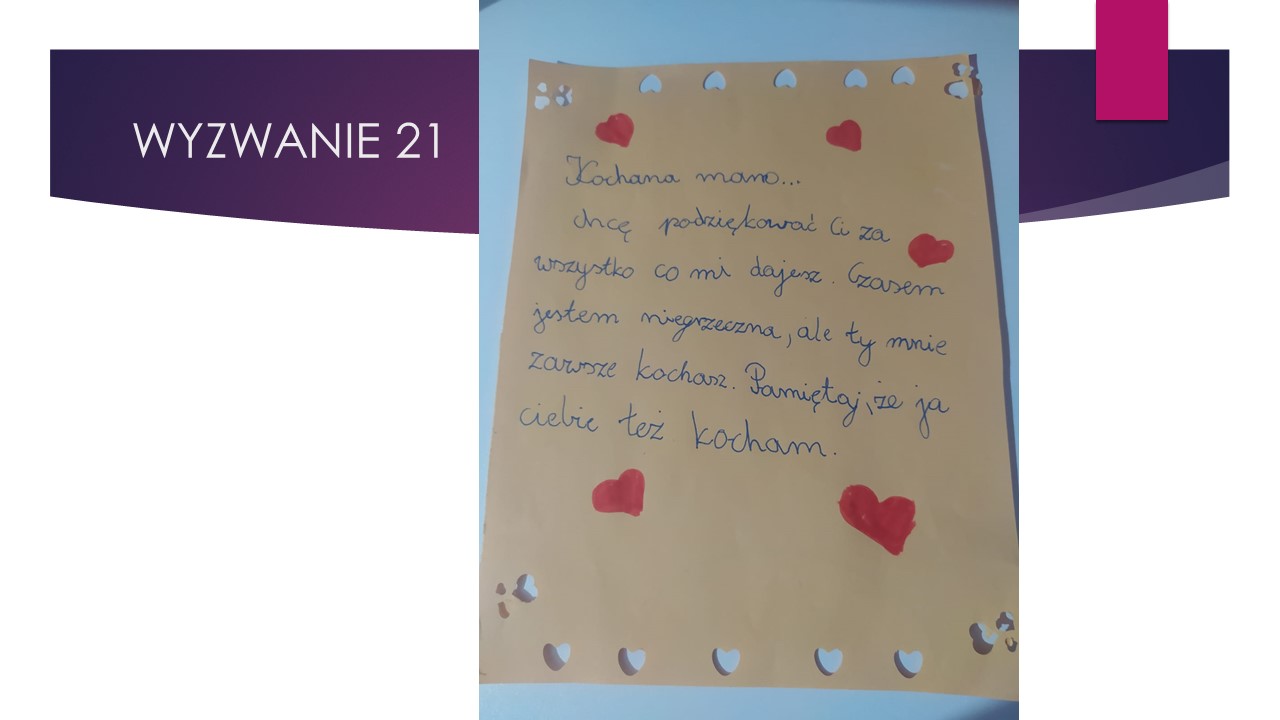 WYZWANIE 21
Kochana mamo...
chcę podziękować Ci za
wszystko co mi dajesz. Czasem
jestem niegrzeczna, ale ty mnie
zawsze kochasz. Pamiętaj, że ja
ciebie też kocham.